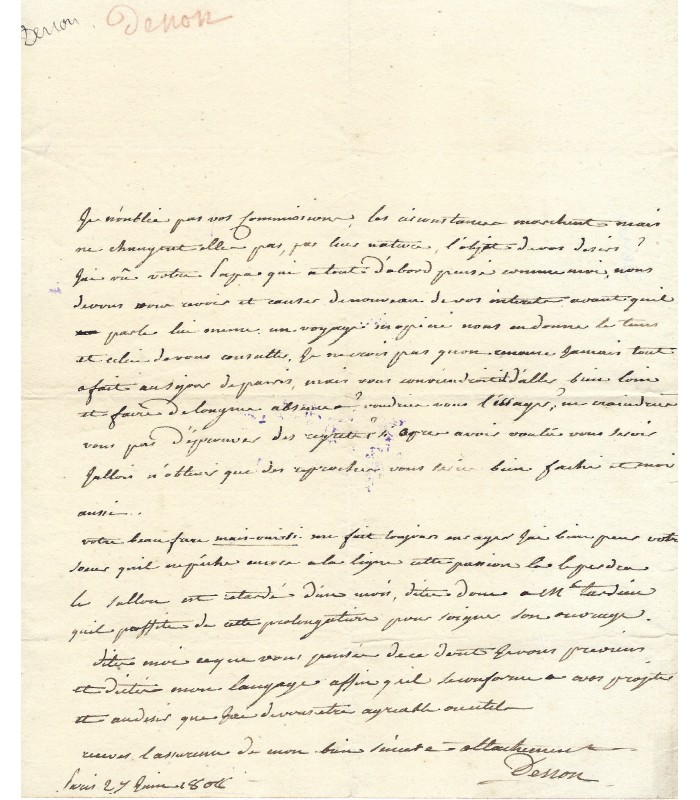 Denon. Denon
Je n'oublie pas vos Commissions, les circonstances marchent mais
ne changent elle pas, par leur nature, l'objet de vos desirs ?
J'ai vû votre Papa qui a tout d'abord pensé comme moi, nous
devons nous revoir et causer de nouveau de vos interets avant qu'il
parle lui meme. un voyage nous en donne le tems
et celui de vous consulter, Je ne crois pas qu'on renonce Jamais tout
a fait au sejour de paris, mais vous conviendroit il d'aller bien loin
et faire de longues absence ? voudriez vous l'essayer, ne craindriez
vous pas d'éprouver des regrets ? si apres avoir voulu vous servir
J'allois n'obtenir que des reproches vous serié bien faché et moi
aussi..
votre beau frere me fait toujours enrager J'ai bien peur votre
soeur qu'il ne pêche encore a la ligne cette passion la le perdra
le sallon est retardé d'un mois, dites donc a Mr tardieu
qu'il proffite de cette prolongation pour soigner son ouvrage.
dites moi ce que vous pensés de ce dont Je vous previens
et dictés mon langage affin qu'il se conforme a vos projets
et au desir que J'ai de vous etre agreable et utile
recevez l'assurance de mon bien sincere attachement
Denon
Paris 27 Juin 1806